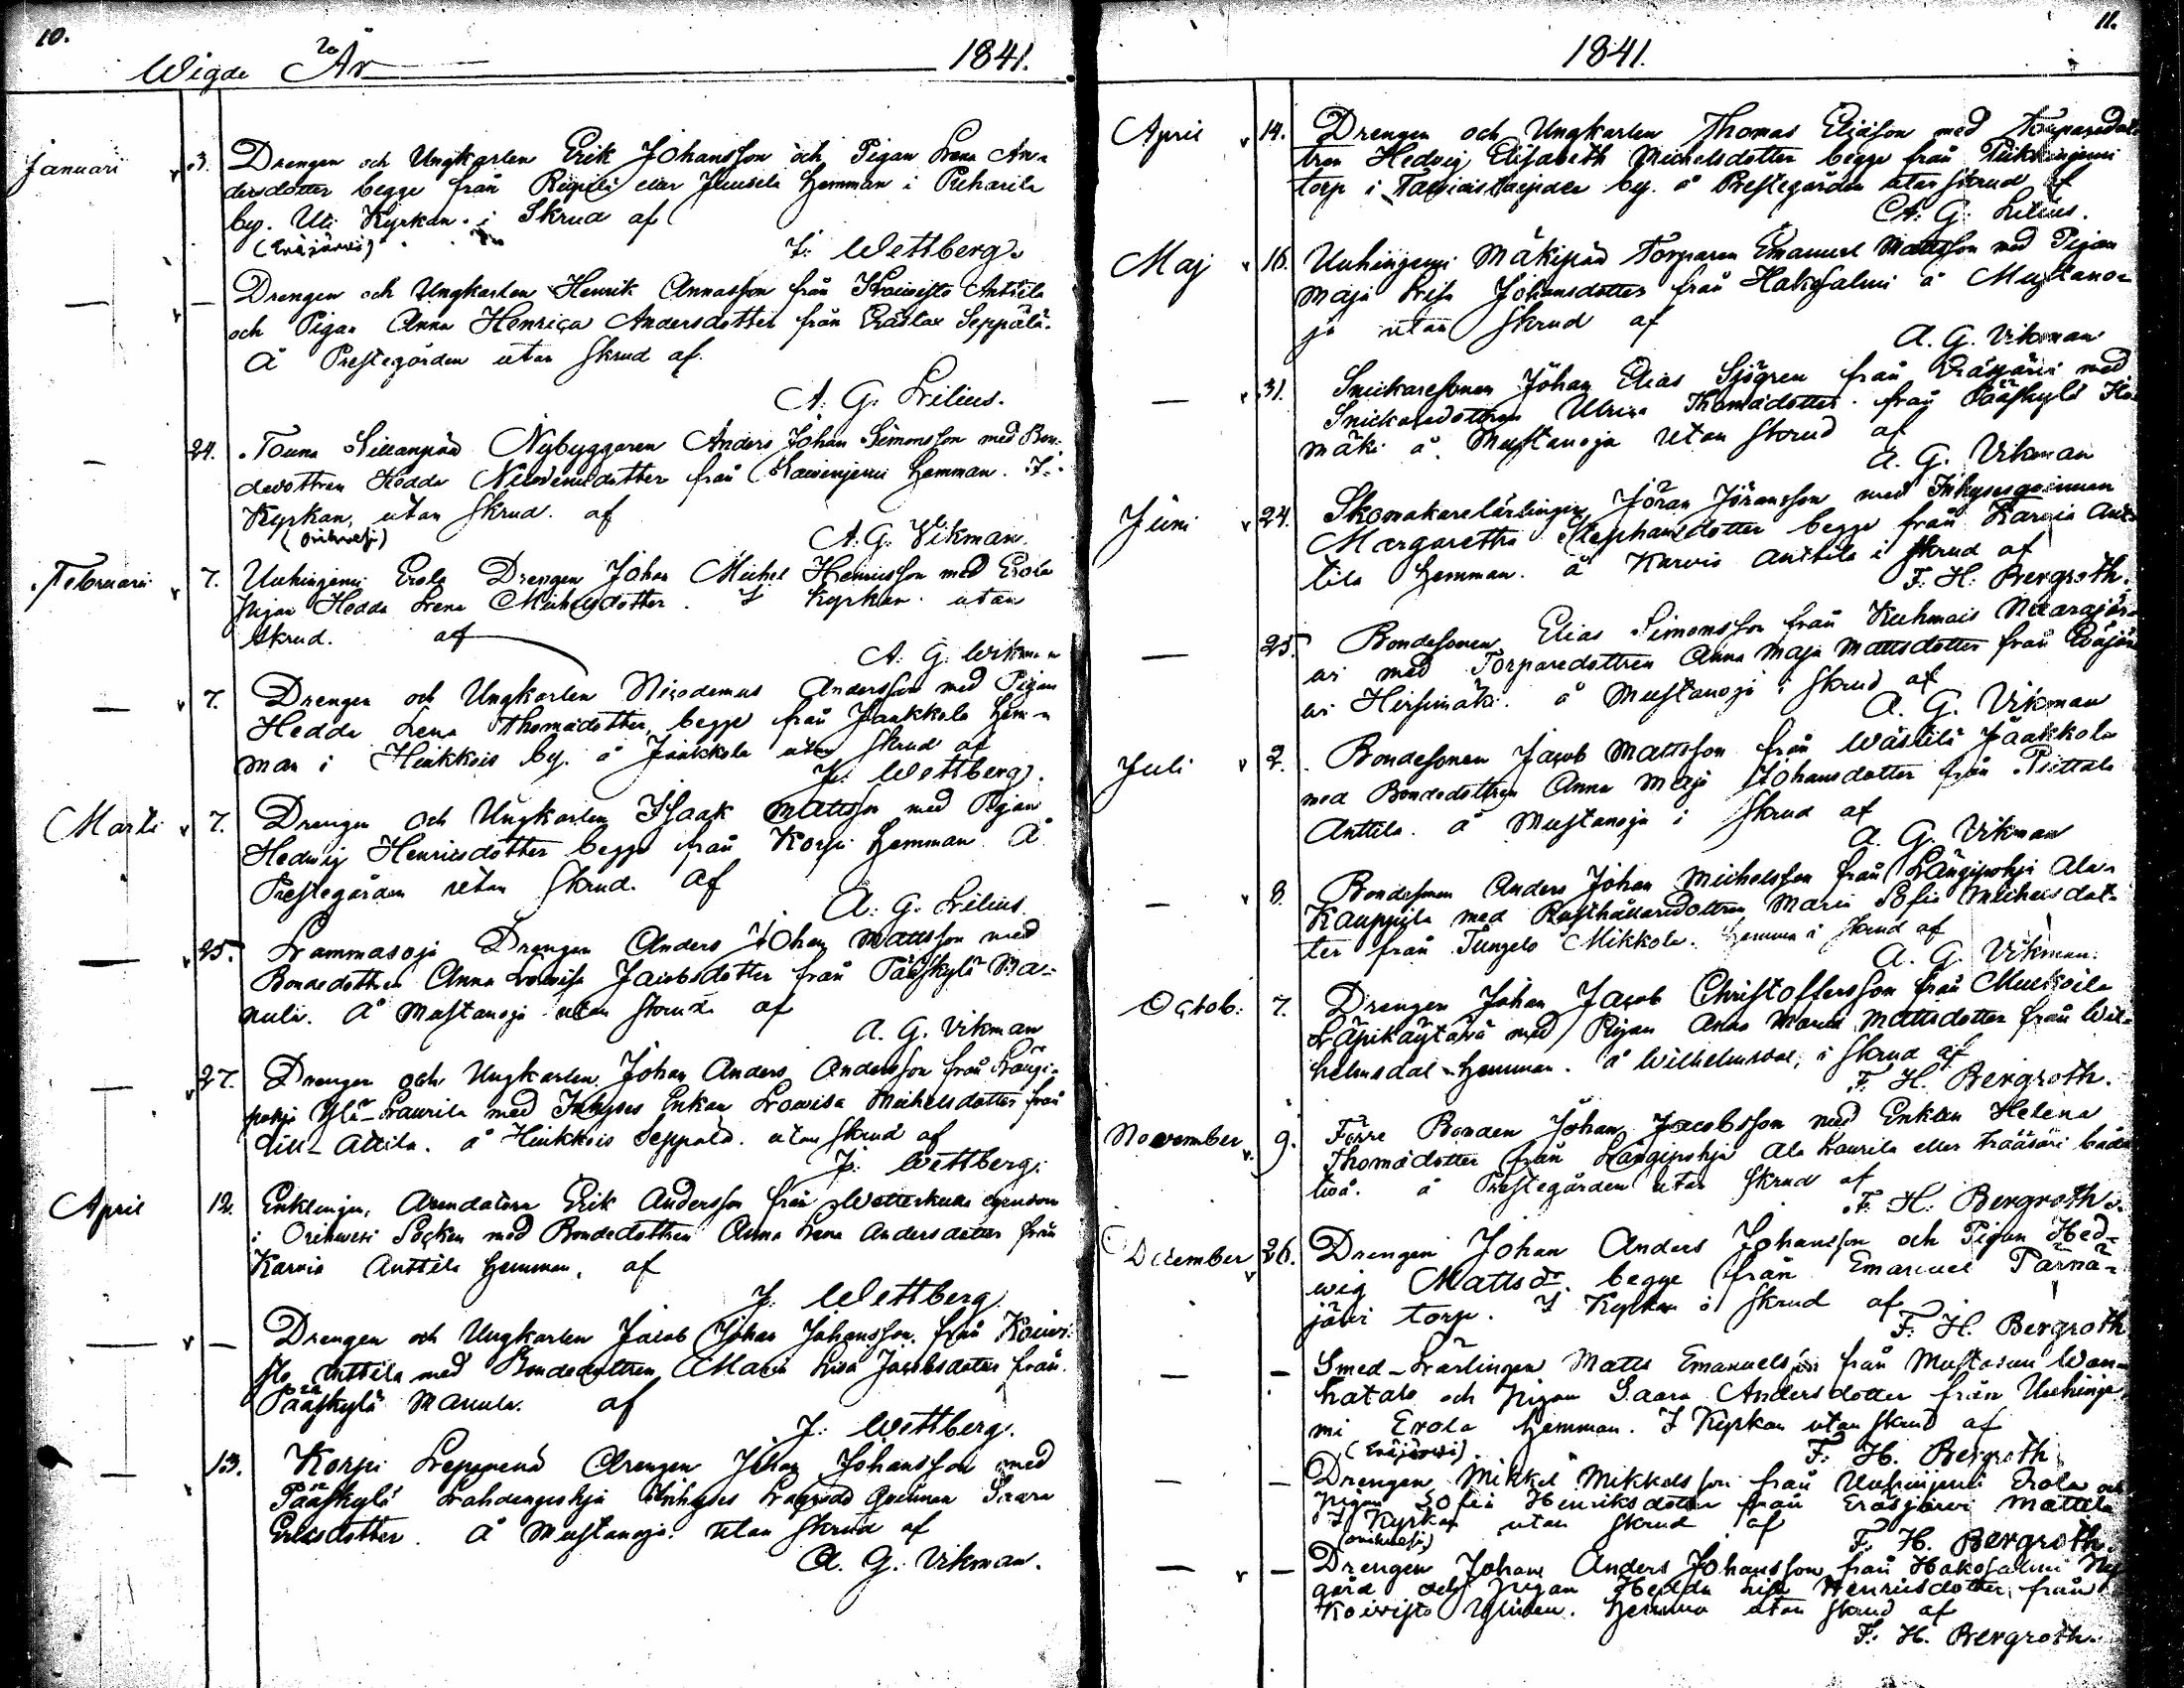 10.
Wigde År 1841.
Januari 3. Drengen och Ungkarlen Erik Johansson och Pigan Lena An-
dersdotter begge från eller Juusela Hemman i Puharila
by. Uti Kyrkan i Skrud af
(Eräjärvi)
J. Wettberg.
— — Drengen och Ungkarlen Henrik Annasson från Koivisto Anttila
och Pigan Anna Henrica Andersdotter från Eräslax Seppälä.
Å Prestegården utan skrud af
A. G. Lilius.
— 24. Sillanpää Nybyggaren Anders Johan Simonsson med Bon-
dedottren Hedda Nicodemidotter från Hemman. I
Kyrkan, utan skrud. af
(Orihvesi)
A. G. Vikman.
Februari 7. Uuhiniemi Erola Drengen Johan Michel Henricsson med Erola
pigan Hedda Lena Michelsdotter. I Kyrkan utan
skrud. af
A. G. Wikman
— 7. Drengen och Ungkarlen Nicodemus Andersson med Pigan
Hedda Lena Thomædotter, begge från Jaakkola Hem-
man i Heikkois by. å Jaakkola utan skrud af
J. Wettberg.
Marti 7. Drengen och Ungkarlen Isaak Mattsson med Pigan
Hedwig Henricsdotter begge från Korpi Hemman Å
Prestegården utan skrud. af
A. G. Lilius.
— 25. Lammasoja Drengen Anders Johan Mattsson med
Bondedottren Anna Lovisa Jacobsdotter från Pääskylä Ma-
nula. Å Mustanoja utan skrud af
A. G. Vikman
— 27. Drengen och Ungkarlen Johan Anders Andersson från Längi-
pohja Ylä-Laurila med Inhyses Enkan Lowisa Michelsdotter från
Attila. å Heikkois Seppälä. utan skrud af
J. Wettberg.
April 12. Enklingen, Arendatorn Erik Andersson från egendom
i Orihwesi Socken med Bondedottren Anna Lena Andersdotter från
Karvia Anttila Hemman, af
J. Wettberg.
— — Drengen och Ungkarlen Jacob Johan Johansson från Koivi-
sto Anttila med Bondedottren Maria Lisa Jacobsdotter från
Pääskylä Manula. af
J. Wettberg.
— 13. Korpi Leppenä Drengen Johan Johansson med
Pääskylä Lahdenpohja Inhyses qvinnan Saara
Ericsdotter. Å Mustanoja. utan skrud af
A. G. Vikman.
11.
1841.
April 14. Drengen och Ungkarlen Thomas Eliasson med Torparedot-
tren Hedvig Elisabeth Michelsdotter begge från
torp i by. å Prestegården utan skrud af
A. G. Lilius.
Maj 16. Uuhiniemi Mäkipää Torparen Emanuel Mattsson med Pigan
Maja Lisa Johansdotter från Hakosalmi å Mustano-
ja utan skrud af
A. G. Vikman
— 31. Snickaresonen Johan Elias Sjögren från Eräjärvi med
Snickaredottren Ulrica Thomædotter från Pääskylä
mäki å Mustanoja utan skrud af
A. G. Vikman
Juni 24. Skomakarelärlingen Jöran Jöransson med Inhysesqvinnan
Margaretha Stephansdotter begge från Karvia Ant-
tila Hemman. å Karvia Anttila i skrud af
F. H. Bergroth.
— 25. Bondesonen Elias Simonsson från Kuhmois Naarajär-
vi med Torparedottren Anna Maja Mattsdotter från Eräjär-
vi Hirsimäki. å Mustanoja i skrud af
A. G. Vikman
Juli 2. Bondesonen Jacob Mattsson från Wästilä Jaakkola
med Bondedottren Anna Maja Johansdotter från
Anttila. å Mustanoja i skrud af
A. G. Vikman
— 8. Bondesonen Anders Johan Michelsson från Längipohja Ala-
Kauppila med Rusthållaredottren Maria Sofia Michelsdot-
ter från Tungelo Mikkola. hemma i skrud af
A. G. Vikman.
October. 7. Drengen Johan Jacob Christoffersson från
Läpikäytävä med Pigan Anna Maria Mattsdotter från Wil-
helmsdal Hemman. å Wilhelmsdal, i skrud af
F. H. Bergroth.
November 9. Förre Bonden Johan Jacobsson med Enkan Helena
Thomædotter från Längipohja Ala Laurila eller båda
två. å Prestegården utan skrud af
F. H. Bergroth.
December 26. Drengen Johan Anders Johansson och Pigan Hed-
wig Mattsdr. begge från Emanuel Pärnä-
järvi torp. I Kyrkan i skrud af
F. H. Bergroth
— — Smed-Lärlingen Matts Emanuelsson från Mustasaari Wan-
hatalo och pigan Saara Andersdotter från Uuhinie-
mi Erola hemman. I Kyrkan utan skrud af
(Eräjärvi)
F. H. Bergroth
— — Drengen Mikkel Mikkelsson från Uuhiniemi Erola och
pigan Sofia Henriksdotter från Eräsjärvi Mattila
I Kyrkan utan skrud af
(Orihvesi)
F. H. Bergroth.
— — Drengen Johan Anders Johansson från Hakosalmi Ny-
gård och pigan Hedda Lisa Henricsdotter, från
Koivisto Yliner. hemma utan skrud af
F. H. Bergroth.